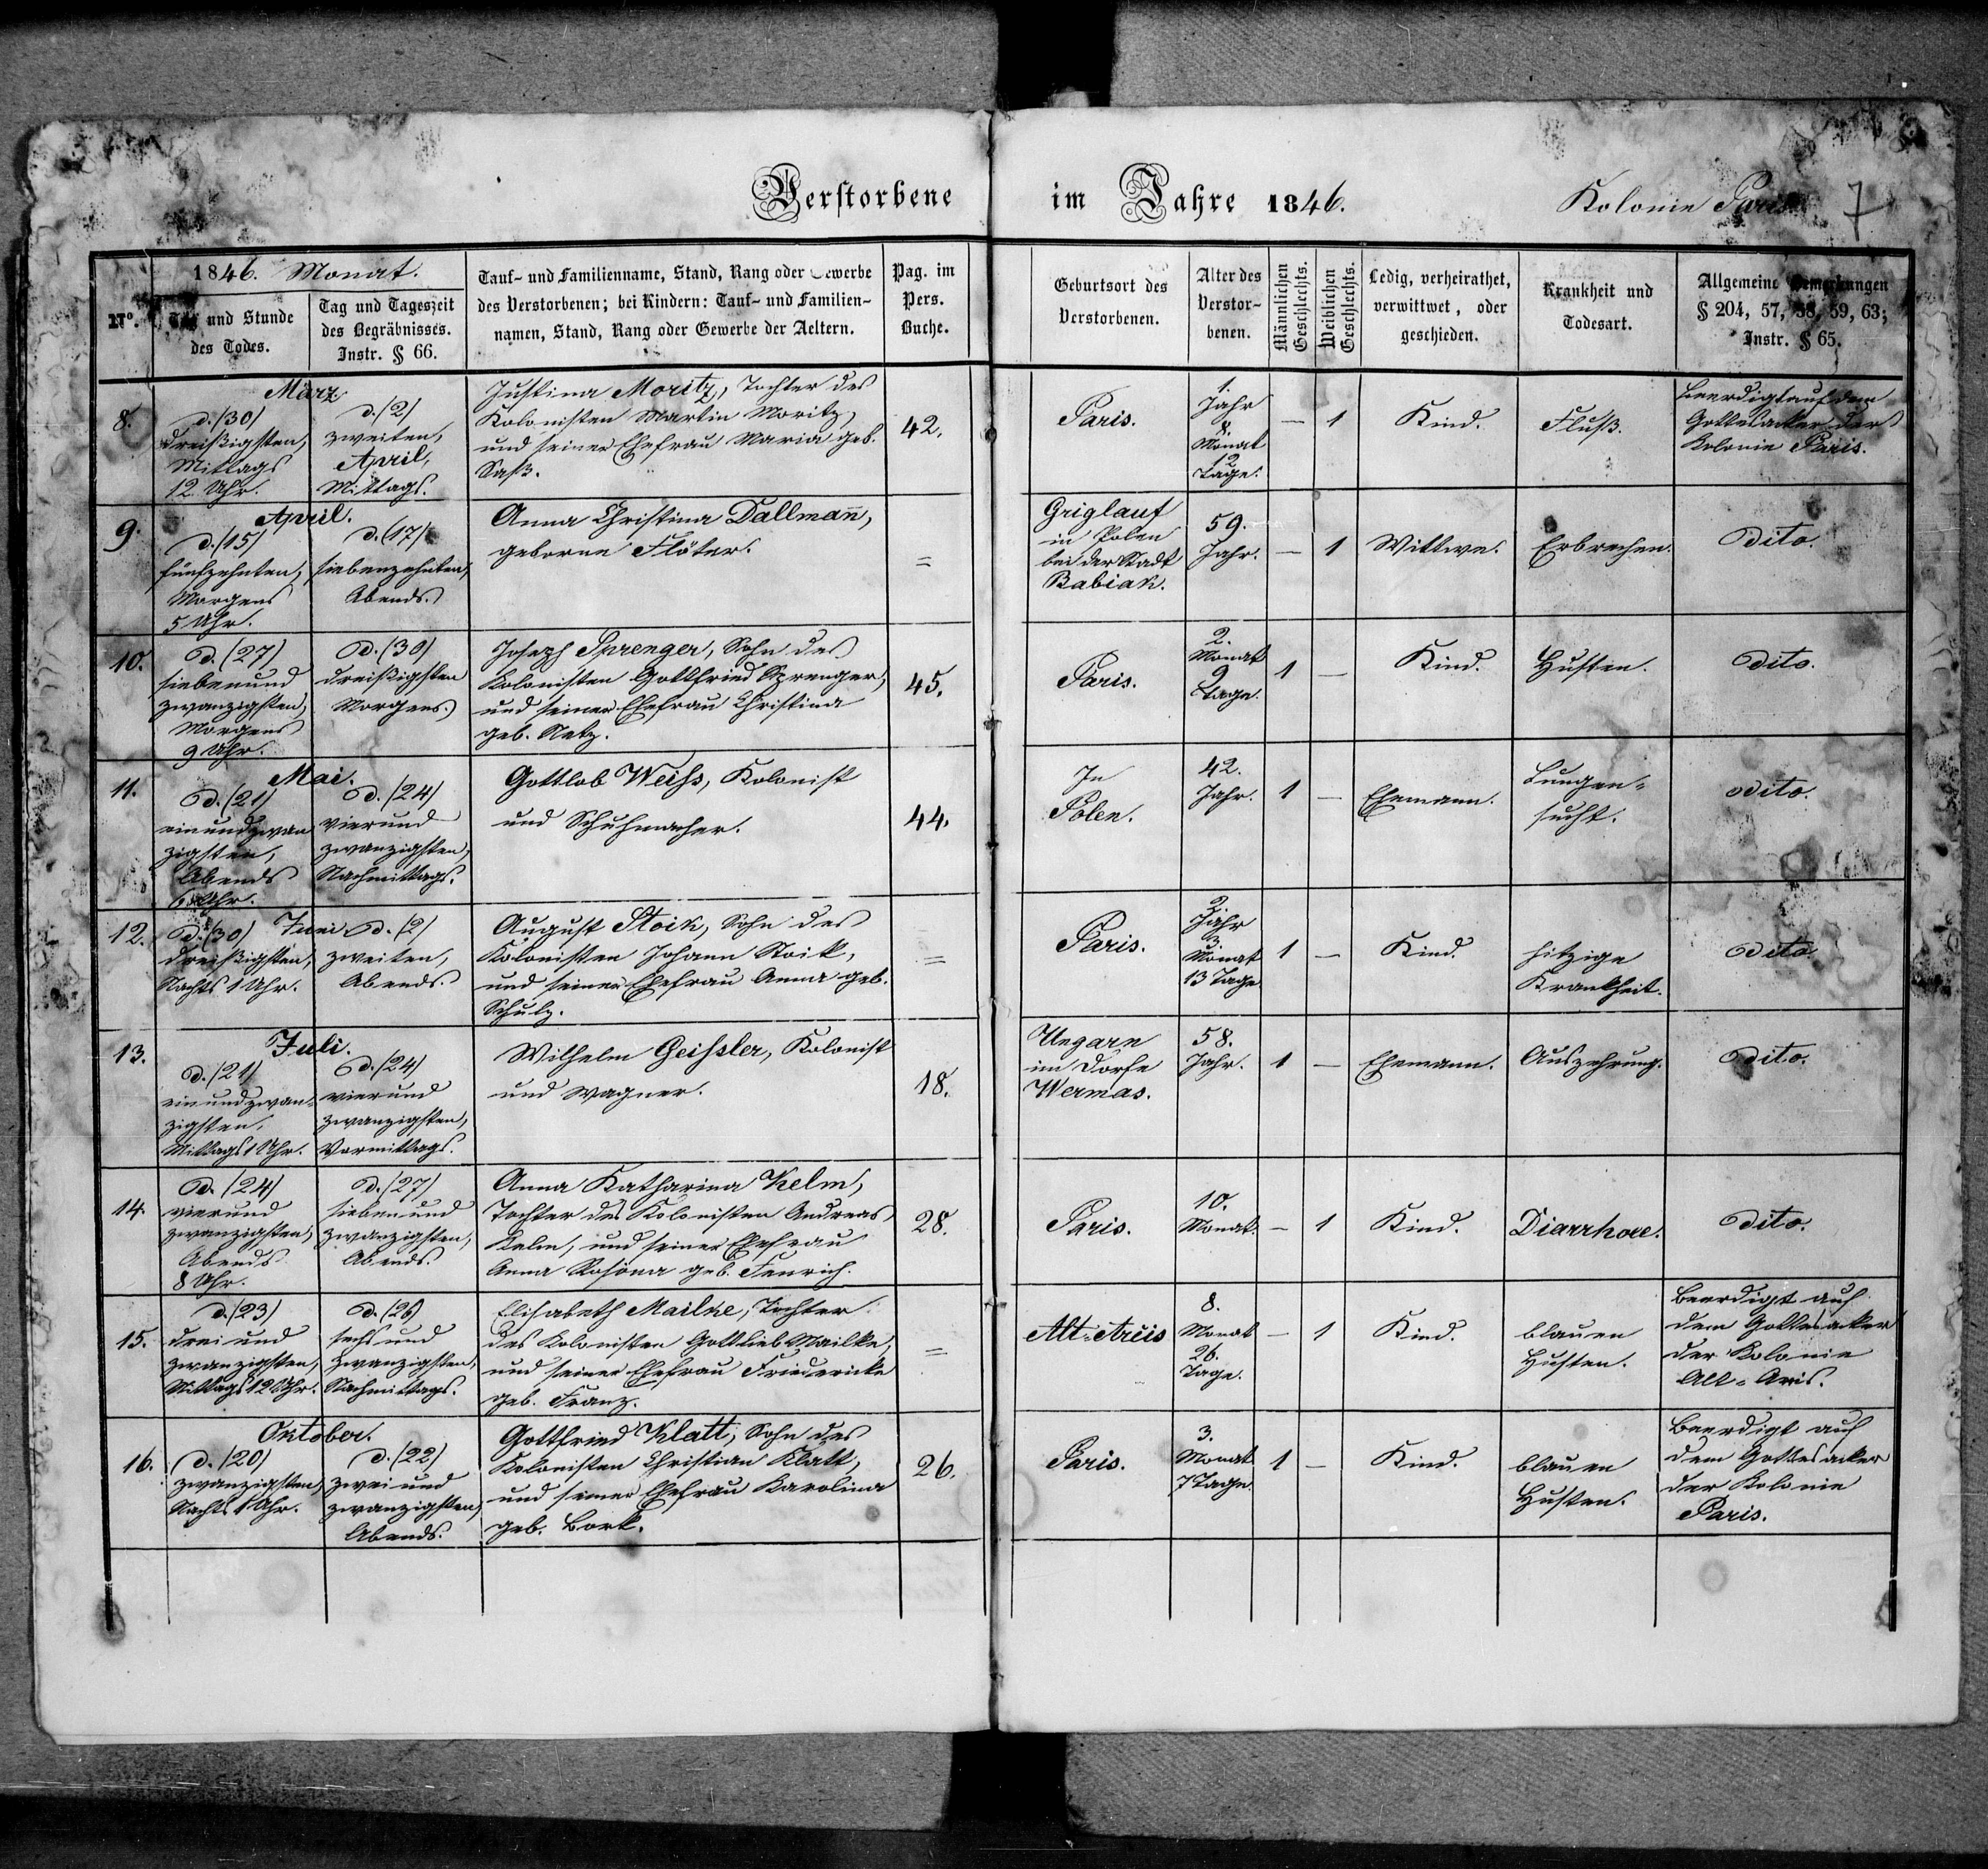 Verstorbene im Jahre 1846. Kolonie Paris 7
1846. Monat.
No.
Tag und Stunde
des Todes.
Tag und Tageszeit
des Begräbnisses.
Instr. § 66.
Tauf- und Familienname, Stand, Rang oder Gewerbe
des Verstorbenen; bei Kindern: Tauf- und Familien-
namen, Stand, Rang oder Gewerbe der Aeltern.
Pag. im
Pers.
Buche.
Geburtsort des
Verstorbenen.
Alter des
Verstor-
benen.
Männlichen
Geschlechts.
Weiblichen
Geschlechts.
Ledig, verheirathet,
verwittwet, oder
geschieden.
Krankheit und
Todesart.
Allgemeine Bemerkungen
§ 204, 57, 58, 59, 63;
Instr. § 65.
8.
März
d. (30)
dreißigsten,
Mittags
12. Uhr.
d. (2)
zweiten,
April,
Mittags.
Justina Moritz, Tochter des
Kolonisten Martin Moritz,
und seiner Ehefrau Maria geb.
Saß.
42.
Paris.
1.
Jahr
8.
Monat
12
Tage.
—
1
Kind.
Fluß.
Beerdigt auf dem
Gottesacker der
Kolonie Paris.
9.
April.
d. (15)
fünfzehnten,
Morgens
5 Uhr.
d. (17)
siebenzehnten,
Abends.
Anna Christina Dallmañ,
geborne Flöter.
=
Griglauf
in Polen
bei der Stadt
Babiak.
59.
Jahr.
—
1
Wittwe.
Erbrechen.
Dito.
10.
d. (27)
siebenund
zwanzigsten,
Morgens
9 Uhr.
d. (30)
dreißigsten
Morgens.
Joseph Sprenger, Sohn des
Kolonisten Gottfried Sprenger,
und seiner Ehefrau Christina
geb. Netz.
45.
Paris.
2.
Monat
9
Tage.
1
—
Kind.
Husten.
Dito.
11.
Mai.
d. (21)
einundzwan
zigsten,
Abends
6 Uhr.
d. (24)
vierund
zwanzigsten,
Nachmittags.
Gottlob Weihs, Kolonist
und Schuhmacher.
44.
In
Polen.
42.
Jahr.
1
—
Ehemann.
Lungen=
sucht.
Dito.
12.
d. (30)
dreißigsten,
Nachts 1 Uhr.
Juni
d. (2)
zweiten,
Abends.
August Stoik, Sohn des
Kolonisten Johann Stoik,
und seiner Ehefrau Anna geb.
Schulz.
=
Paris.
2.
Jahr
3.
Monat
13 Tage
1
—
Kind.
hitzige
Krankheit.
Dito
13.
Juli.
d. (21)
einundzwan=
zigsten,
Mittags 1 Uhr.
d. (24)
vierund
zwanzigsten,
Vormittags.
Wilhelm Geihsler, Kolonist
und Wagner.
18.
Ungarn
im Dorfe
Wermas.
58.
Jahr.
1
—
Ehemann.
Auszehrung.
Dito.
14.
d. (24)
vierund
zwanzigsten,
Abends
8 Uhr.
d. (27)
siebenund
zwanzigsten,
Abends.
Anna Katharina Kelm,
Tochter des Kolonisten Andreas
Kelm, und seiner Ehefrau
Anna Rosina geb. Fenrich.
28.
Paris.
10.
Monat.
—
1
Kind.
Diarrhoee.
Dito.
15.
d. (23)
drei und
zwanzigsten,
Mittags 12 Uhr.
d. (26)
sechs und
zwanzigsten,
Nachmittags.
Elisabeth Mailke, Tochter
des Kolonisten Gottlieb Mailke,
und seiner Ehefrau Friedericke
geb. Franz.
=
Alt=Arcis
8.
Monat
26.
Tage.
—
1
Kind.
blauen
Husten.
Beerdigt auf
dem Gottesacker
der Kolonie
Alt=Arcis.
16.
Oktober.
d. (20)
zwanzigsten,
Nachts 1 Uhr.
d. (22)
zwei und
zwanzigsten,
Abends.
Gottfried Klatt, Sohn des
Kolonisten Christian Klatt,
und seiner Ehefrau Karolina
geb. Bork.
26.
Paris.
3.
Monat
7 Tage.
1
—
Kind.
blauen
Husten.
Beerdigt auf
dem Gottesacker
der Kolonie
Paris.